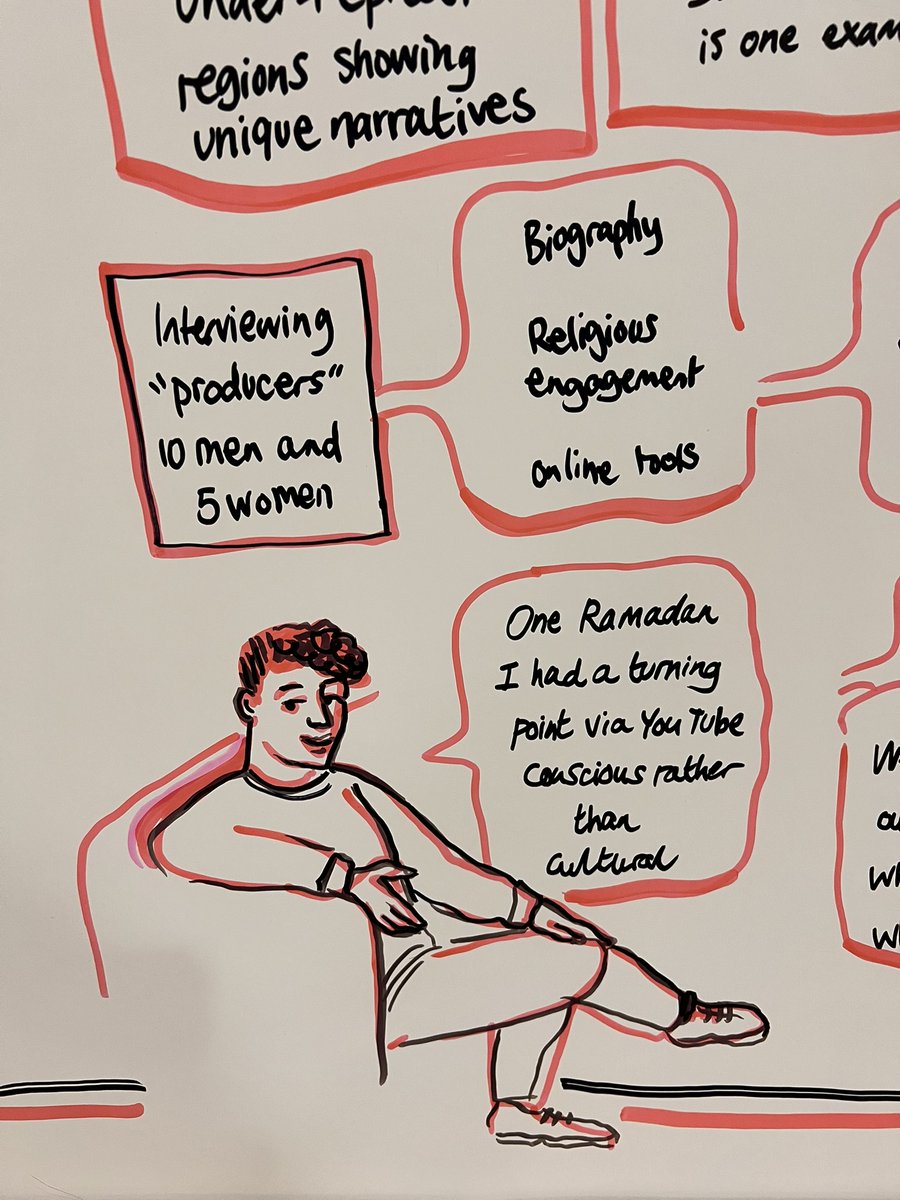 regions showing
unique narratives
is one
Interviewing
"producers"
10 men and
5 women
Biography
Religious
engagement
online tools
One Ramadan
I had a turning
point via YouTube
conscious rather
than
cultural